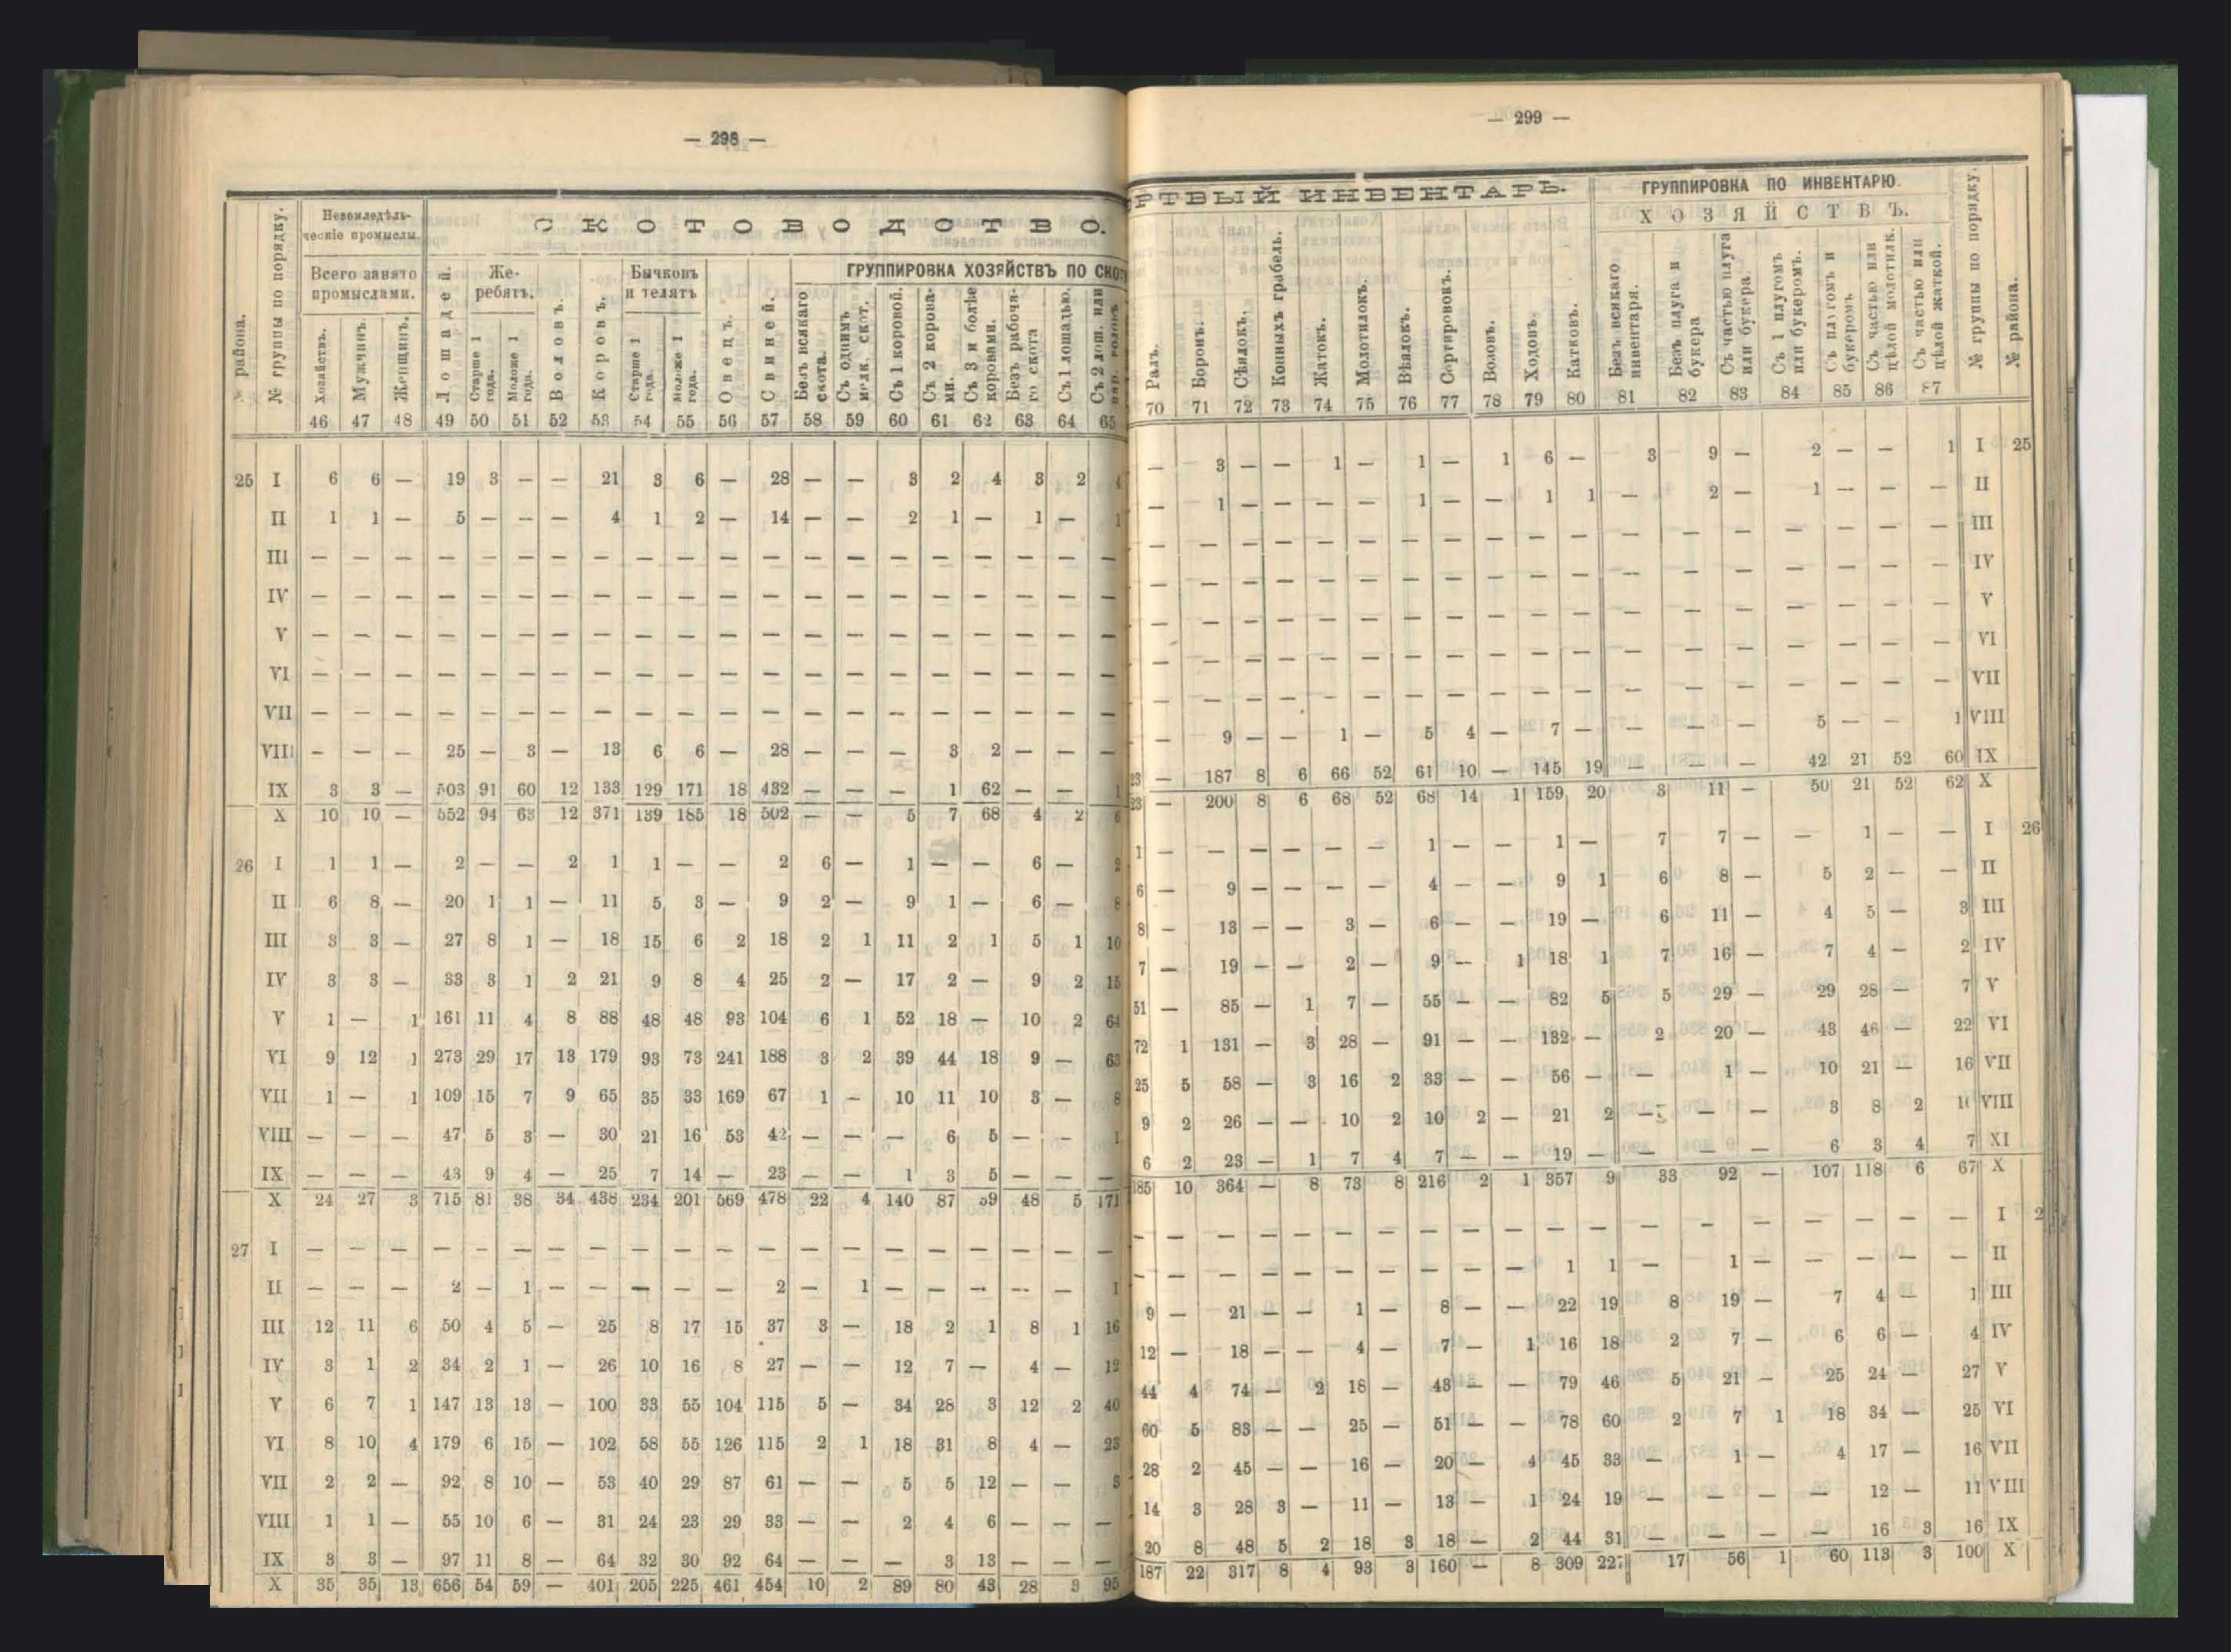 — 298 —
№ района.
№ группы по порядку.
Неземледѣль-
ческіе промыслы.
СКОТОВОДСТВО.
Всего занято
промыслами.
Лошадей.
Же-
ребятъ.
Воловъ.
Коровъ.
Бычковъ
и телятъ
Овецъ.
Свиней.
ГРУППИРОВКА ХОЗЯЙСТВЪ ПО СКОТ
Хозяйствъ.
Мужчинъ.
Женщинъ.
Старше 1
года.
Моложе 1
года.
Старше 1
года.
Моложе 1
года.
Безъ всякаго
скота.
Съ однимъ
мелк. скот.
Съ 1 коровой.
Съ 2 корова-
ми.
Съ 3 и болѣе
коровами.
Безъ рабоча-
го скота
Съ 1 лошадью.
Съ 2 лош. или
46 47 48 49 50 51 52 53 54 55 56 57 58 59 60 61 62 63 64 65
25 I 6 6 — 19 3 — — 21 3 6 — 28 — — 3 2 4 3 2
II 1 1 — 5 — — — 4 1 2 — 14 — — 2 1 — 1 — 1
III — — — — — — — — — — — — — — — — — — — —
IV — — — — — — — — — — — — — — — — — — — —
V — — — — — — — — — — — — — — — — — — — —
VI — — — — — — — — — — — — — — — — — — — —
VII — — — — — — — — — — — — — — — — — — — —
VIII — — — 25 — 3 — 13 6 6 — 28 — — — 3 2 — — —
IX 3 3 — 503 91 60 12 133 129 171 18 432 — — — 1 62 — — 1
X 10 10 — 552 94 63 12 371 139 185 18 502 — — 5 7 68 4 2 6
26 I 1 1 — 2 — — 2 1 1 — — 2 6 — 1 — — 6 — 2
II 6 8 — 20 1 1 — 11 5 3 — 9 2 — 9 1 — 6 — 8
III 3 3 — 27 8 1 — 18 15 6 2 18 2 1 11 2 1 5 1 10
IV 3 3 — 33 3 1 2 21 9 8 4 25 2 — 17 2 — 9 2 15
V 1 — 1 161 11 4 8 88 48 48 93 104 6 1 52 18 — 10 2 64
VI 9 12 1 273 29 17 13 179 93 73 241 188 3 2 39 44 18 9 — 63
VII 1 — 1 109 15 7 9 65 35 33 169 67 1 — 10 11 10 3 — 8
VIII — — — 47 5 3 — 30 21 16 53 42 — — — 6 5 — — 1
IX — — — 43 9 4 — 25 7 14 — 23 — — 1 3 5 — — —
X 24 27 3 715 81 38 34 438 234 201 569 478 22 4 140 87 39 48 5 171
27 I — — — — — — — — — — — — — — — — — — — —
II — — — 2 — 1 — — — — — 2 — 1 — — — — — 1
III 12 11 6 50 4 5 — 25 8 17 15 37 3 — 18 2 1 8 1 16
IV 3 1 2 34 2 1 — 26 10 16 8 27 — — 12 7 — 4 — 12
V 6 7 1 147 13 13 — 100 33 55 104 115 5 — 34 28 3 12 2 40
VI 8 10 4 179 6 15 — 102 58 55 126 115 2 1 18 31 8 4 — 23
VII 2 2 — 92 8 10 — 53 40 29 87 61 — — 5 5 12 — — 3
VIII 1 1 — 55 10 6 — 31 24 23 29 33 — — 2 4 6 — — —
IX 3 3 — 97 11 8 — 64 32 30 92 64 — — — 3 13 — — —
X 35 35 13 656 54 59 — 401 205 225 461 454 10 2 89 80 43 28 3 95
— 299 —
РТВЫЙ ИНВЕНТАРЬ.
ГРУППИРОВКА ПО ИНВЕНТАРЮ.
ХОЗЯЙСТВЪ.
Ралъ.
Боронъ.
Сѣялокъ.
Конныхъ грабель.
Жатокъ.
Молотилокъ.
Вѣялокъ.
Сортировокъ.
Возовъ.
Ходовъ.
Катковъ.
Безъ всякаго
инвентаря.
Безъ плуга и
букера
Съ частью плуга
или букера.
Съ 1 плугомъ
или букеромъ.
Съ плугомъ и
букеромъ
Съ частью или
цѣлой молотилк.
Съ частью или
цѣлой жаткой.
№ группы по порядку.
№ района.
70 71 72 73 74 75 76 77 78 79 80 81 82 83 84 85 86 87
— 3 — — 1 — 1 — 1 6 — 3 9 — 2 — — 1 I 25
— 1 — — — — 1 — — 1 1 — 2 — 1 — — — II
— — — — — — — — — — — — — — — — — — III
— — — — — — — — — — — — — — — — — — IV
— — — — — — — — — — — — — — — — — — V
— — — — — — — — — — — — — — — — — — VI
— — — — — — — — — — — — — — — — — — VII
— 9 — — 1 — 5 4 — 7 — — — — 5 — — 1 VIII
23 — 187 8 6 66 52 61 10 — 145 19 — — — 42 21 52 60 IX
23 — 200 8 6 68 52 68 14 1 159 20 3 11 — 50 21 52 62 X
1 — — — — — — 1 — — 1 — 7 7 — — 1 — — I 26
6 — 9 — — — — 4 — — 9 1 6 8 — 5 2 — — II
8 — 13 — — 3 — 6 — — 19 — 6 11 — 4 5 — 3 III
7 — 19 — — 2 — 9 — 1 18 1 7 16 — 7 4 — 2 IV
51 — 85 — 1 7 — 55 — — 82 5 5 29 — 29 28 — 7 V
72 1 131 — 3 28 — 91 — — 132 — 2 20 — 43 46 — 22 VI
25 5 58 — 3 16 2 33 — — 56 — — 1 — 10 21 — 16 VII
9 2 26 — — 10 2 10 2 — 21 2 — — — 3 8 2 10 VIII
6 2 23 — 1 7 4 7 — — 19 — — — — 6 3 4 7 XI
185 10 364 — 8 73 8 216 2 1 357 9 33 92 — 107 118 6 67 X
— — — — — — — — — — — — — — — — — — — I 2
— — — — — — — — — — 1 1 — 1 — — — — — II
9 — 21 — — 1 — 8 — — 22 19 8 19 — 7 4 — 1 III
12 — 18 — — 4 — 7 — 1 16 18 2 7 — 6 6 — 4 IV
44 4 74 — 2 18 — 43 — — 79 46 5 21 — 25 24 — 27 V
60 5 83 — — 25 — 51 — — 78 60 2 7 1 18 34 — 25 VI
28 2 45 — — 16 — 20 — 4 45 33 — 1 — 4 17 — 16 VII
14 3 28 3 — 11 — 13 — 1 24 19 — — — — 12 — 11 VIII
20 8 48 5 2 18 3 18 — 2 44 31 — — — — 16 3 16 IX
187 22 317 8 4 93 3 160 — 8 309 227 17 56 1 60 113 3 100 X